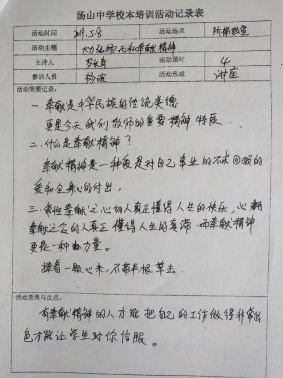 汤山中学校本培训活动记录表
活动时间 2019.5.8 活动地点 阶梯教室
活动主题 大力弘扬无私奉献精神
主持人 活动课时 4
参训人员 杨 活动形式 讲座
活动简要记录：
一 奉献是中华民族的传统美德
更是今天我们教师的重要精神特质
二. 什么是奉献精神？
奉献精神是一种 是对自己事业的不求回报的
爱和全身心的付出.
三. 有奉献之心的人真正懂得人生的快乐，心
奉献之念的人真正懂得人生的真谛. 而奉献精神
更是一种 力量。
捧着一颗心来，不带半根草去.
活动效果与反思：
有奉献精神的人才能把自己的工作做得非常出
色才能让学生对你信服。